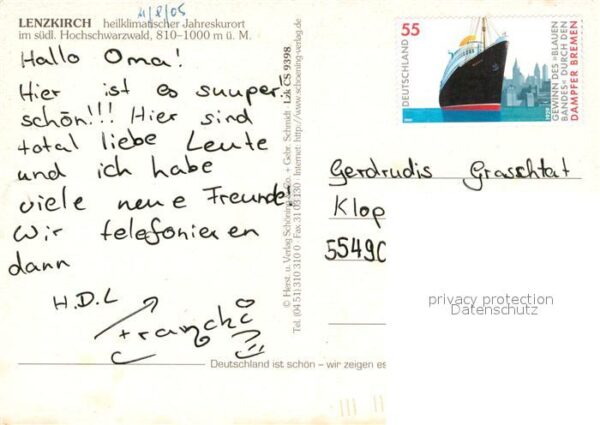 11/8/05
LENZKIRCH heilklimatischer Jahreskurort
im südl. Hochschwarzwald, 810–1000 m ü. M.
Hallo Oma!
Hier ist es suuper!
schön!!! Hier sind
total liebe Leute
und ich habe
viele neue Freunde!
Wir telefonieren
dann
H.D.L
© Herst. u. Verlag Schöning & Co. + Gebr. Schmidt Lzk CS 9398
Tel. (04 51) 310 310 0 · Fax 31 03 130 · Internet: http://www.schoening-verlag.de
Deutschland ist schön – wir zeigen es
55
DEUTSCHLAND
GEWINN DES »BLAUEN
BANDES« DURCH DEN
DAMPFER BREMEN
Gerdrudis
Klop
55490
privacy protection
Datenschutz